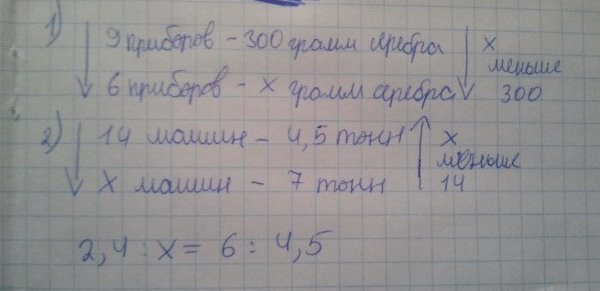 1) 9 приборов - 300 грамм серебра х
меньше
6 приборов - х грамм серебра 300
2) 14 машин - 4,5 тонн х
меньше
х машин - 7 тонн 14
2,4 : х = 6 : 4,5